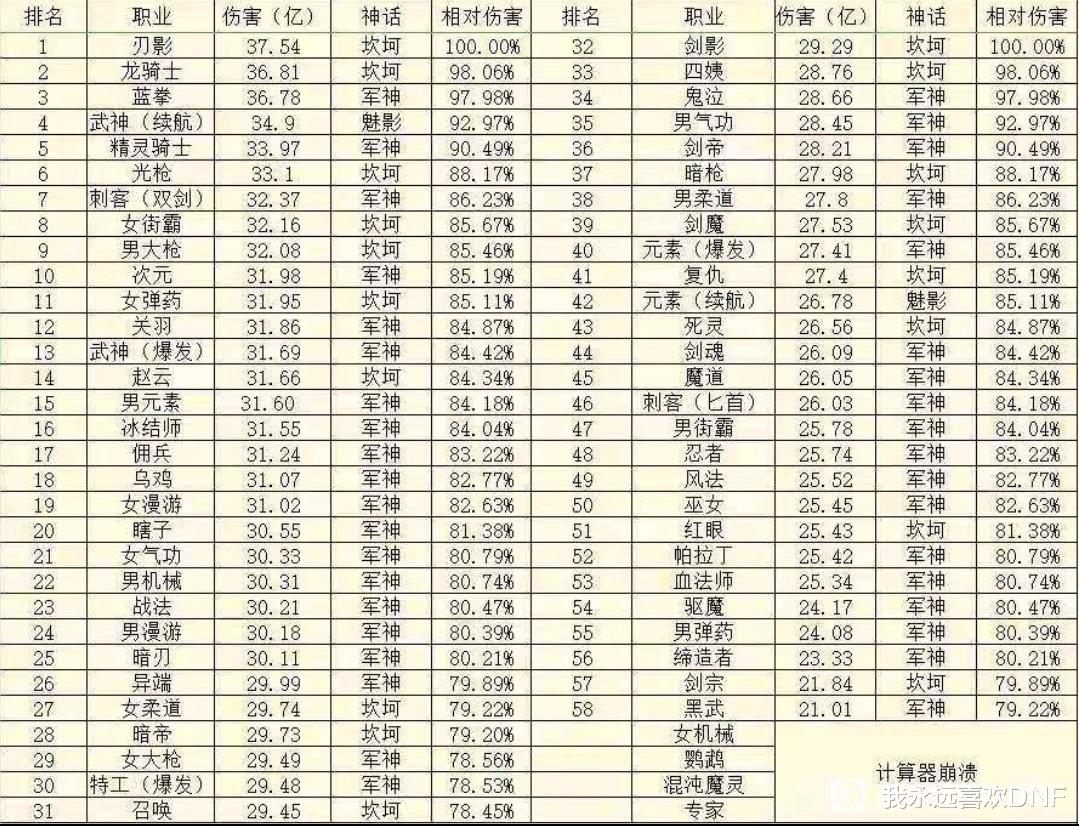 排名 职业 伤害（亿） 神话 相对伤害 排名 职业 伤害（亿） 神话 相对伤害
1 刃影 37.54 坎坷 100.00% 32 剑影 29.29 坎坷 100.00%
2 龙骑士 36.81 坎坷 98.06% 33 四姨 28.76 坎坷 98.06%
3 蓝拳 36.78 军神 97.98% 34 鬼泣 28.66 军神 97.98%
4 武神（续航） 34.9 魅影 92.97% 35 男气功 28.45 军神 92.97%
5 精灵骑士 33.97 军神 90.49% 36 剑帝 28.21 军神 90.49%
6 光枪 33.1 坎坷 88.17% 37 暗枪 27.98 坎坷 88.17%
7 刺客（双剑） 32.37 军神 86.23% 38 男柔道 27.8 军神 86.23%
8 女街霸 32.16 坎坷 85.67% 39 剑魔 27.53 坎坷 85.67%
9 男大枪 32.08 坎坷 85.46% 40 元素（爆发） 27.41 军神 85.46%
10 次元 31.98 军神 85.19% 41 复仇 27.4 坎坷 85.19%
11 女弹药 31.95 坎坷 85.11% 42 元素（续航） 26.78 魅影 85.11%
12 关羽 31.86 军神 84.87% 43 死灵 26.56 坎坷 84.87%
13 武神（爆发） 31.69 军神 84.42% 44 剑魂 26.09 军神 84.42%
14 赵云 31.66 坎坷 84.34% 45 魔道 26.05 军神 84.34%
15 男元素 31.60 军神 84.18% 46 刺客（匕首） 26.03 军神 84.18%
16 冰结师 31.55 军神 84.04% 47 男街霸 25.78 军神 84.04%
17 佣兵 31.24 军神 83.22% 48 忍者 25.74 军神 83.22%
18 乌鸡 31.07 军神 82.77% 49 风法 25.52 军神 82.77%
19 女漫游 31.02 军神 82.63% 50 巫女 25.45 军神 82.63%
20 瞎子 30.55 军神 81.38% 51 红眼 25.43 坎坷 81.38%
21 女气功 30.33 军神 80.79% 52 帕拉丁 25.42 军神 80.79%
22 男机械 30.31 军神 80.74% 53 血法师 25.34 军神 80.74%
23 战法 30.21 军神 80.47% 54 驱魔 24.17 军神 80.47%
24 男漫游 30.18 军神 80.39% 55 男弹药 24.08 军神 80.39%
25 暗刃 30.11 军神 80.21% 56 缔造者 23.33 军神 80.21%
26 异端 29.99 军神 79.89% 57 剑宗 21.84 坎坷 79.89%
27 女柔道 29.74 坎坷 79.22% 58 黑武 21.01 军神 79.22%
28 暗帝 29.73 坎坷 79.20% 女机械
29 女大枪 29.49 军神 78.56% 鹦鹉
30 特工（爆发） 29.48 军神 78.53% 混沌魔灵
31 召唤 29.45 坎坷 78.45% 专家
计算器崩溃
我永远喜欢DNF